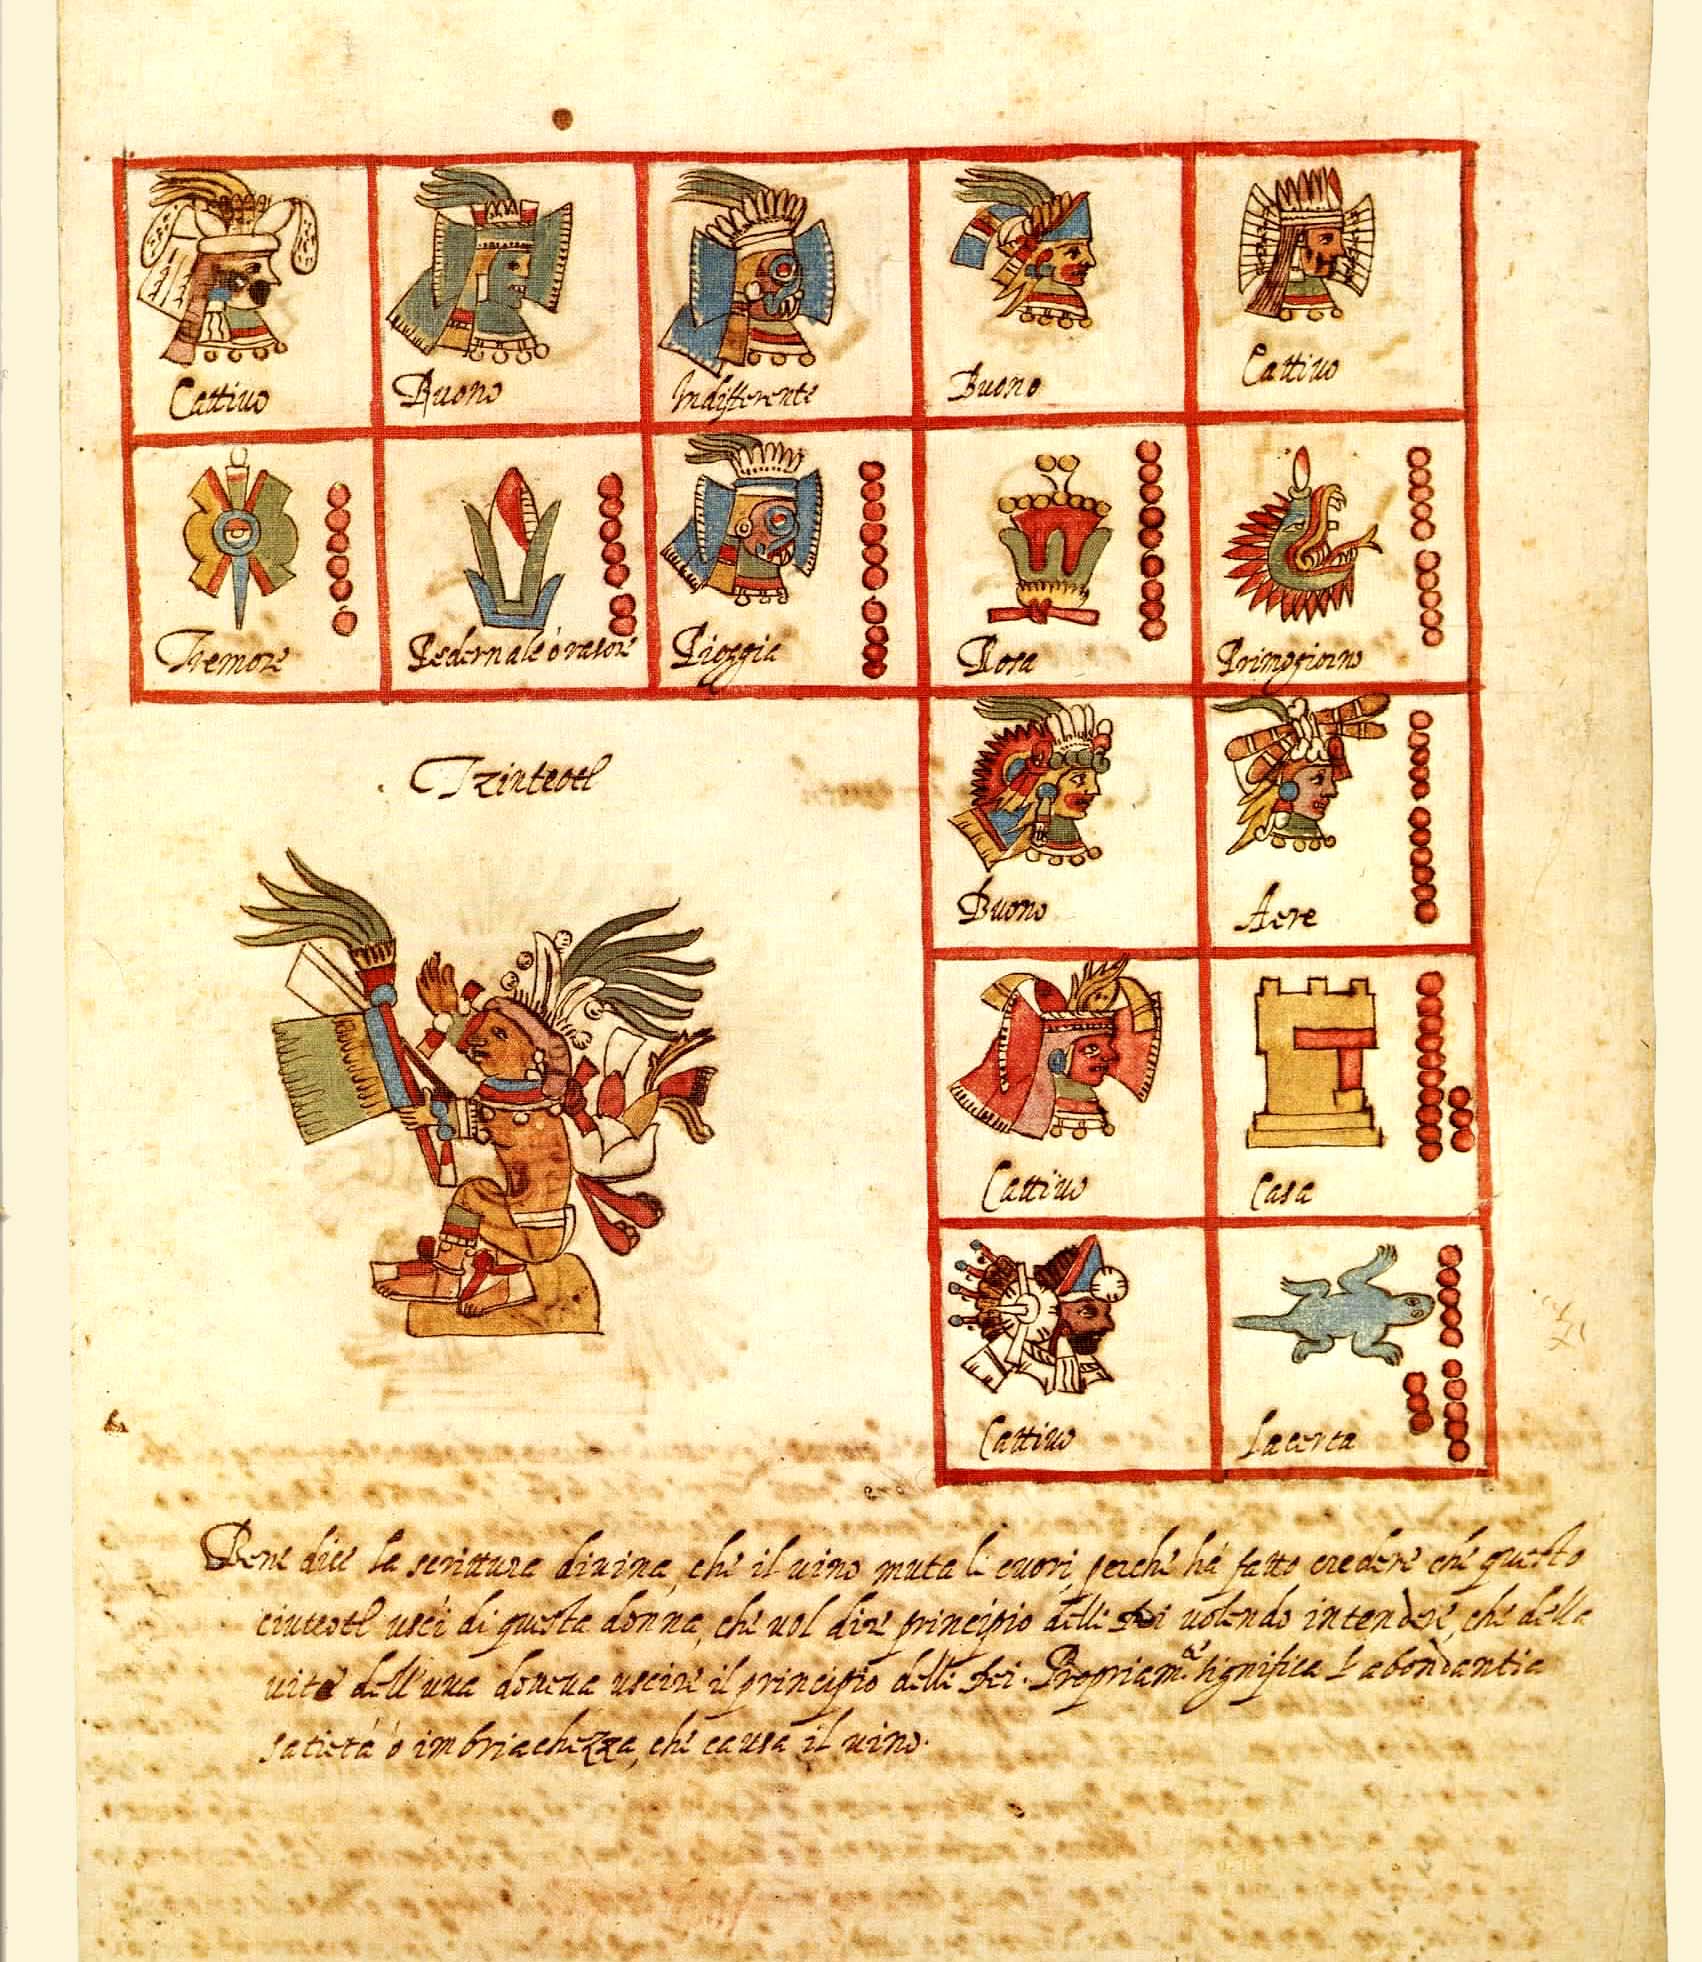 Cattiuo Buono Indifferente Buono Cattiuo
Tremore Pedernale ò rasore Pioggia Rosa Primogiorno
Tzinteotl
Buono Aere
Cattiuo Casa
Cattiuo Lacerta
Bene dice la scrittura diuina, che il uino muta li cuori, perche hà fatto credere che questo
ciuteotl uscì di questa donna, che uol dire principio delli Dei uolendo intendere, che della
uite dell'uua doueua uscire il principio delli Dei. Propriam.te significa l'abondantia
satietà ò imbriachezza, che causa il uino.